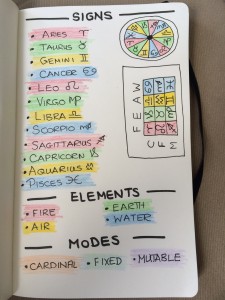 SIGNS
• ARIES ♈
• TAURUS ♉
• GEMINI ♊
• CANCER ♋
• LEO ♌
• VIRGO ♍
• LIBRA ♎
• SCORPIO ♏
• SAGITTARIUS ♐
• CAPRICORN ♑
• AQUARIUS ♒
• PISCES ♓
F E A W
C F M
ELEMENTS
• FIRE • EARTH
• AIR • WATER
MODES
• CARDINAL • FIXED • MUTABLE